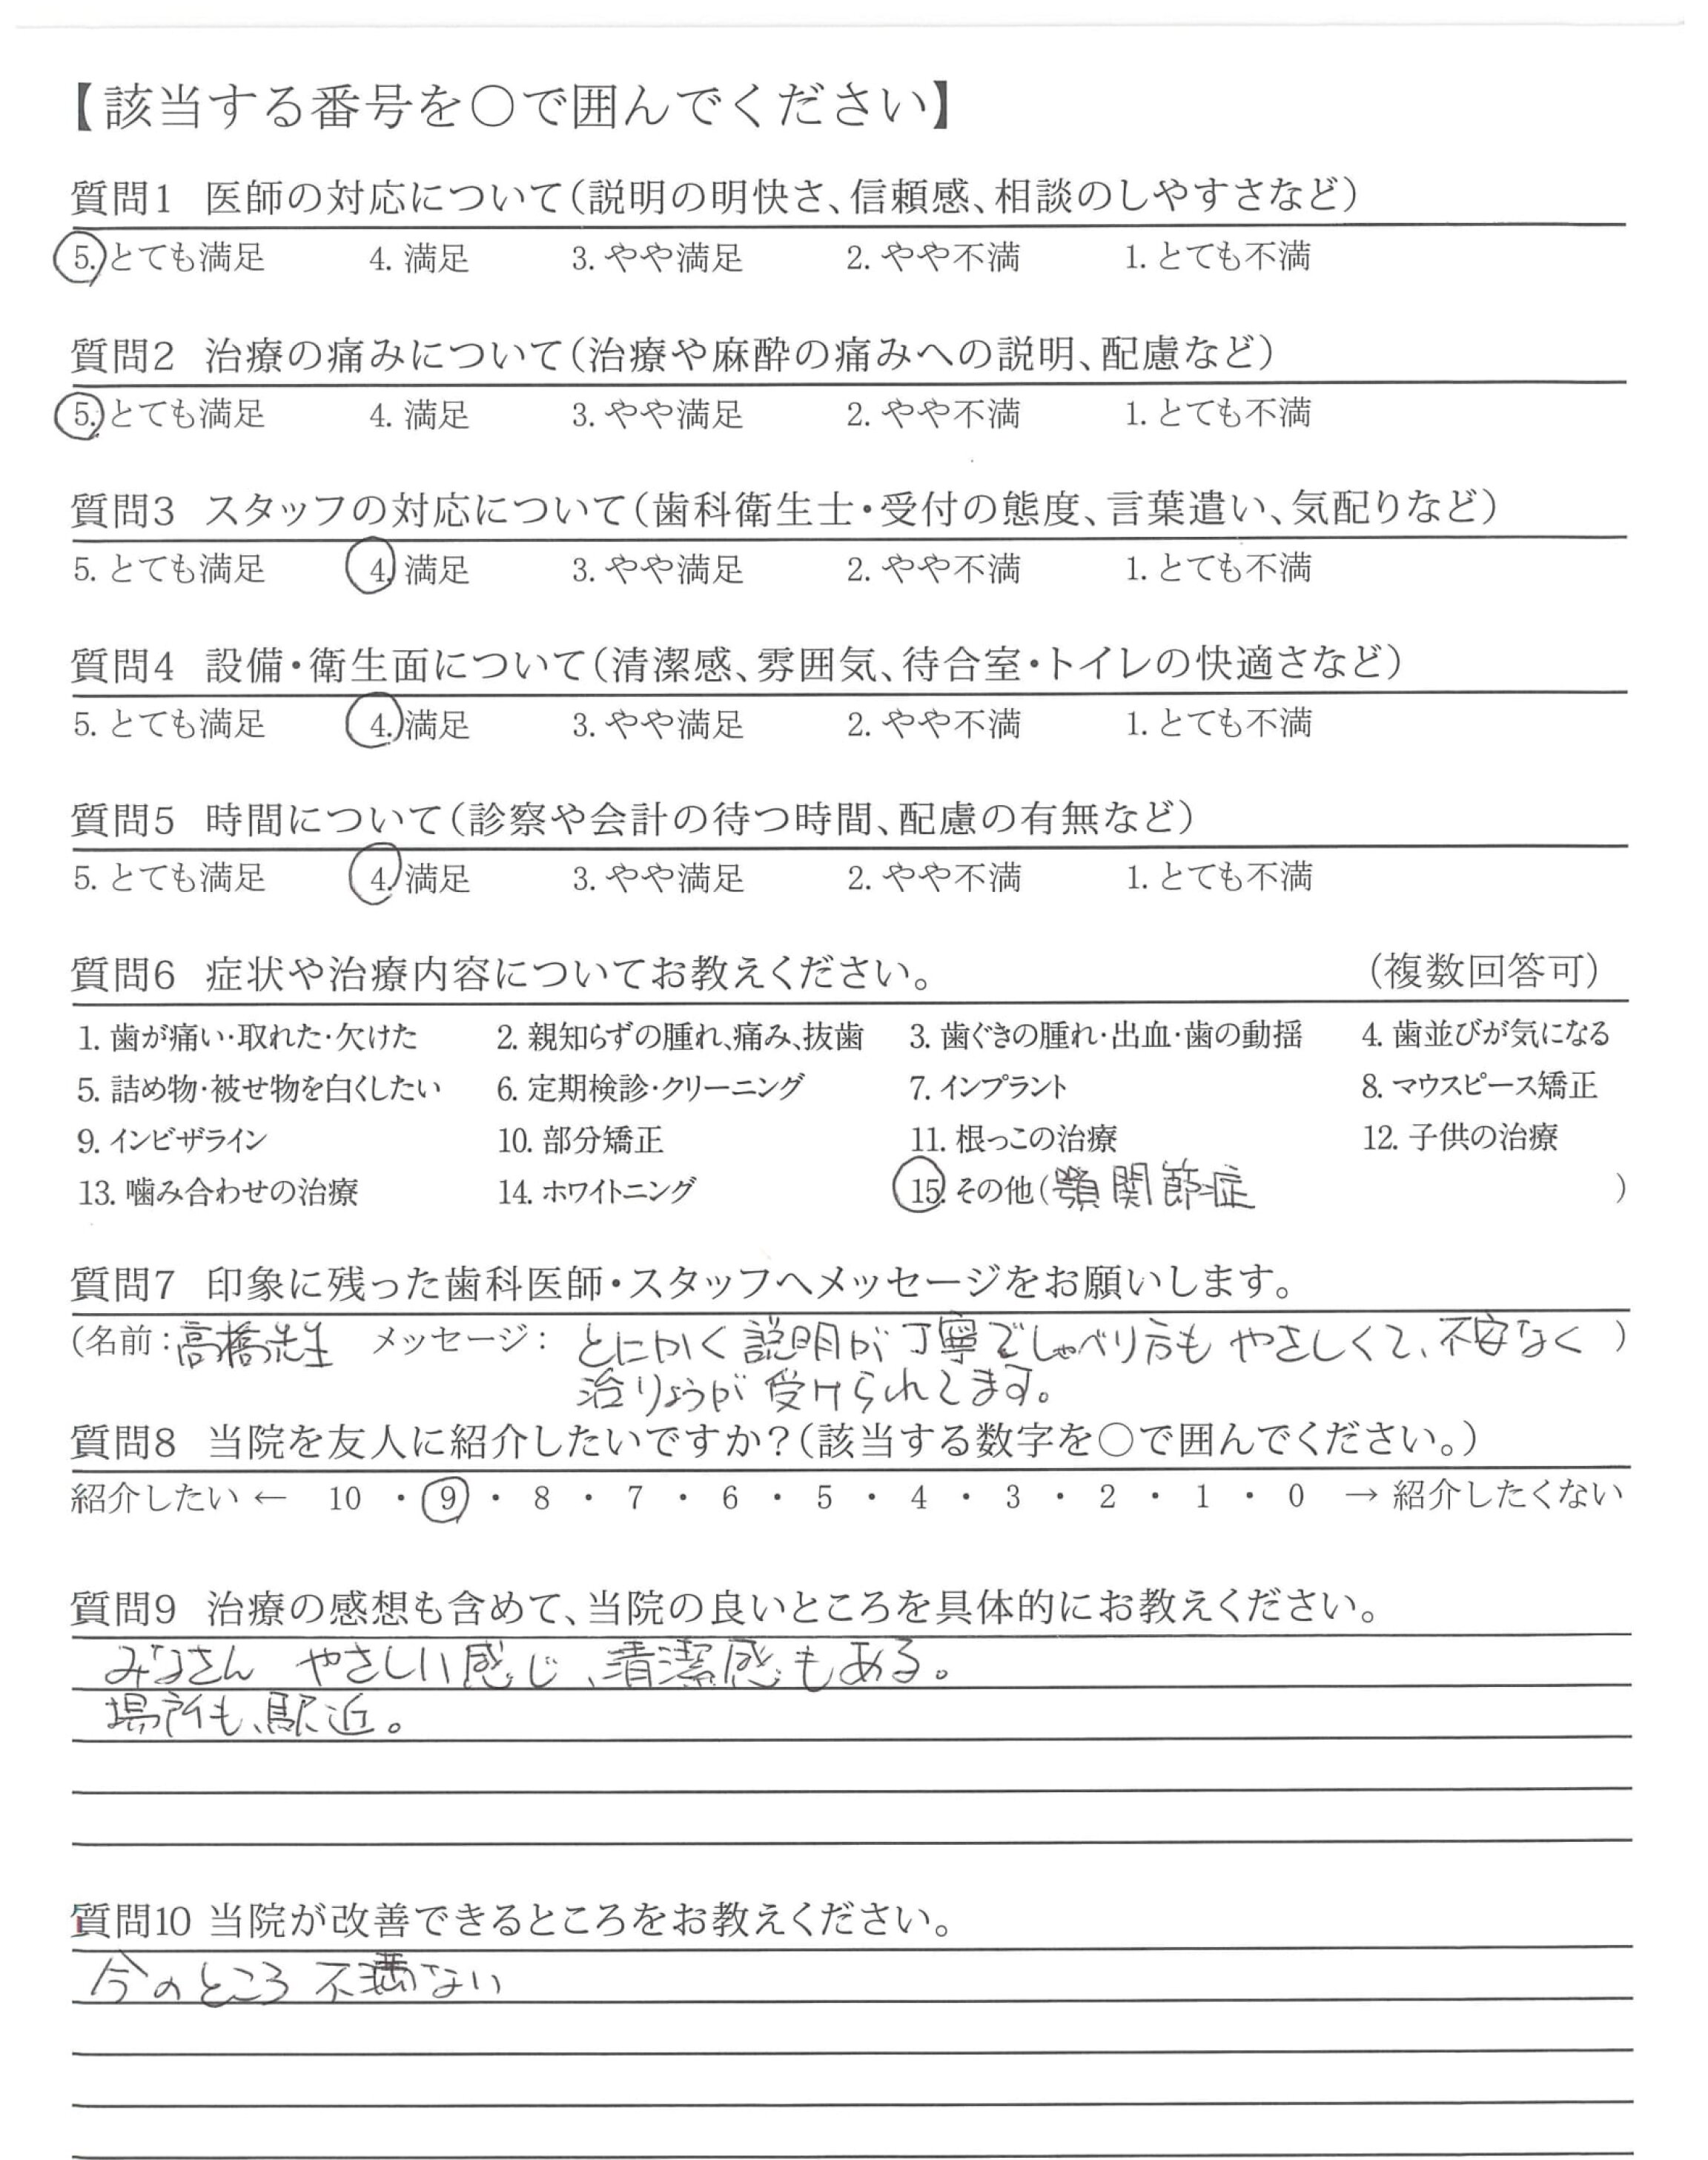 【該当する番号を〇で囲んでください】
質問1 医師の対応について(説明の明快さ、信頼感、相談のしやすさなど)
5. とても満足 4. 満足 3. やや満足 2. やや不満 1. とても不満
質問2 治療の痛みについて(治療や麻酔の痛みへの説明、配慮など)
5. とても満足 4. 満足 3. やや満足 2. やや不満 1. とても不満
質問3 スタッフの対応について(歯科衛生士・受付の態度、言葉遣い、気配りなど)
5. とても満足 4. 満足 3. やや満足 2. やや不満 1. とても不満
質問4 設備・衛生面について(清潔感、雰囲気、待合室・トイレの快適さなど)
5. とても満足 4. 満足 3. やや満足 2. やや不満 1. とても不満
質問5 時間について(診察や会計の待つ時間、配慮の有無など)
5. とても満足 4. 満足 3. やや満足 2. やや不満 1. とても不満
質問6 症状や治療内容についてお教えください。 (複数回答可)
1. 歯が痛い・取れた・欠けた 2. 親知らずの腫れ、痛み、抜歯 3. 歯ぐきの腫れ・出血・歯の動揺 4. 歯並びが気になる
5. 詰め物・被せ物を白くしたい 6. 定期検診・クリーニング 7. インプラント 8. マウスピース矯正
9. インビザライン 10. 部分矯正 11. 根っこの治療 12. 子供の治療
13. 噛み合わせの治療 14. ホワイトニング 15. その他(顎関節症 )
質問7 印象に残った歯科医師・スタッフへメッセージをお願いします。
(名前:高橋先生 メッセージ: とにかく説明が丁寧でしゃべり方もやさしくて、不安なく )
治りょうが受けられてます。
質問8 当院を友人に紹介したいですか?(該当する数字を〇で囲んでください。)
紹介したい ← 10 ・ 9 ・ 8 ・ 7 ・ 6 ・ 5 ・ 4 ・ 3 ・ 2 ・ 1 ・ 0 → 紹介したくない
質問9 治療の感想も含めて、当院の良いところを具体的にお教えください。
みなさん やさしい感じ、清潔感もある。
場所も、駅近。
質問10 当院が改善できるところをお教えください。
今のところ 不満ない